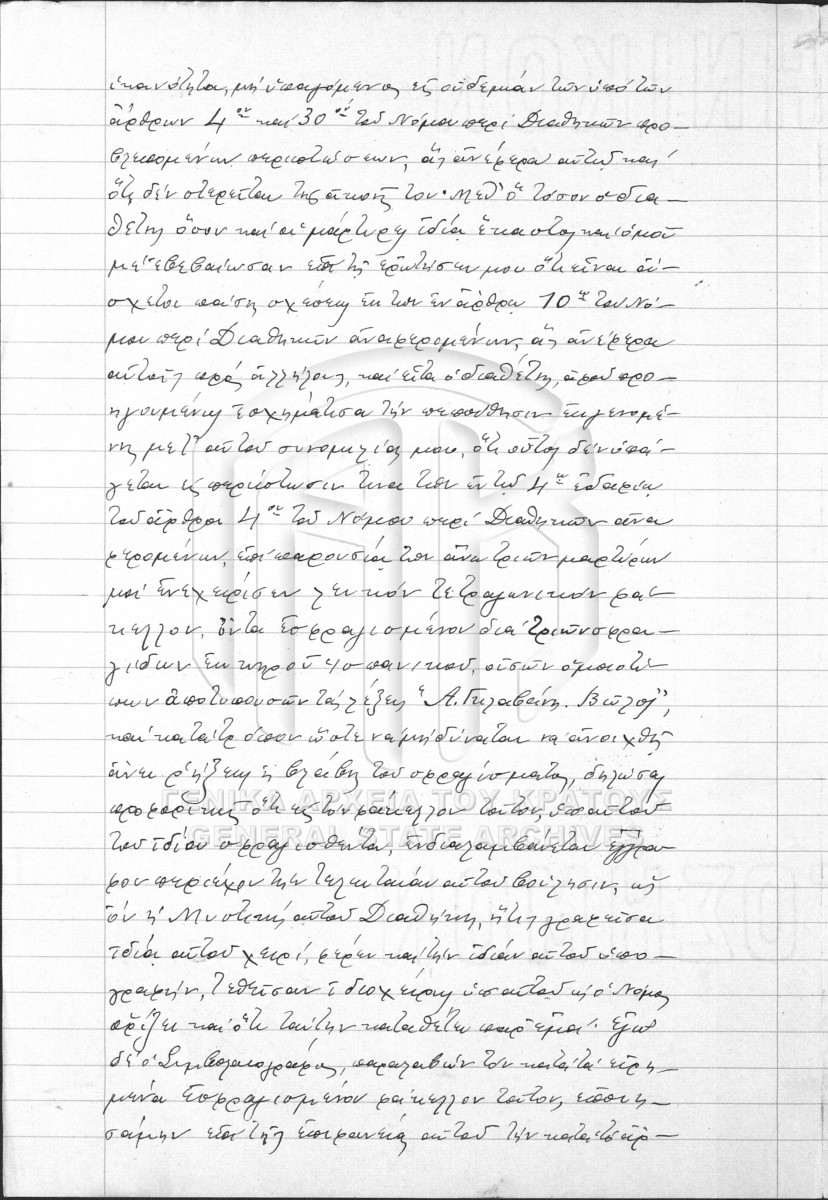 ἱκανότητα, μὴ ὑπαγόμενος εἰς οὐδεμίαν τῶν ὑπὸ τῶν
ἄρθρων 4ον καὶ 30ὸν τοῦ Νόμου περὶ Διαθηκῶν προ-
βλεπομένων περιπτώσεων, ἃς ἀνέφερα αὐτῷ καὶ
ὅτι δὲν στερεῖται τῆς ἀκοῆς του. Μεθ' ὃ τόσον ὁ δια-
θέτης ὅσον καὶ οἱ μάρτυρες ἰδίᾳ ἕκαστος καὶ ὁμοῦ
μὲ ἐβεβαίωσαν ἐπὶ τῇ ἐρωτήσει μου ὅτι εἶναι ἄ-
σχετοι πάσης σχέσεως ἐκ τῶν ἐν ἄρθρῳ 10ῳ τοῦ Νό-
μου περὶ Διαθηκῶν ἀναφερομένων, ἃς ἀνέφερα
αὐτοῖς πρὸς ἀλλήλους, καὶ εἶτα ὁ διαθέτης, ἀφοῦ προ-
ηγουμένως ἐσχημάτισα τὴν πεποίθησιν ἐκ γενομέ-
νης μετ' αὐτοῦ συνομιλίας μου, ὅτι οὗτος δὲν ὑπά-
γεται εἰς περίπτωσιν τινα τῶν ἐν τῷ 4ῳ ἐδαφίῳ
τοῦ ἄρθρου 4ου τοῦ Νόμου περὶ Διαθηκῶν ἀνα
φερομένων, ἐπὶ παρουσίᾳ τῶν ἄνω τριῶν μαρτύρων
μοὶ ἐνεχείρισεν λευκὸν τετραγωνικὸν φά-
κελλον, ὄντα ἐσφραγισμένον διὰ τριῶν σφρα-
γίδων ἐκ κηροῦ ἱσπανικοῦ, οὐσῶν ὁμοιοτύ
πων ἀποτυπουσῶν τὰς λέξεις "Α. Γκλαβάνης. Βῶλος",
καὶ κατὰ τρόπον ὥστε νὰ μὴ δύναται νὰ ἀνοιχθῇ
ἄνευ ρήξεως ἢ βλάβης τοῦ σφραγίσματος, δηλώσας
προφορικῶς ὅτι εἰς τὸν φάκελλον τοῦτον, ὑπ' αὐτοῦ
τοῦ ἰδίου σφραγισθέντα, ἐνδιαλαμβάνεται ἔγγρα-
φον περιέχον τὴν τελευταίαν αὐτοῦ βούλησιν, ὡς
ὂν ἡ Μυστικὴ αὐτοῦ Διαθήκη, ἥτις γραφεῖσα
ἰδίᾳ αὐτοῦ χειρί, φέρει καὶ τὴν ἰδίαν αὐτοῦ ὑπο-
γραφήν, τεθεῖσαν ἰδιοχείρως ὑπ' αὐτοῦ ὡς ὁ Νόμος
ὁρίζει καὶ ὅτι ταύτην καταθέτει παρ' ἐμοί. Ἐγὼ
δὲ ὁ Συμβολαιογράφος, παραλαβὼν τὸν κατὰ τὰ εἰρη-
μένα ἐσφραγισμένον φάκελλον τοῦτον, ἐποιη-
σάμην ἐπὶ τῆς ἐπιφανείας αὐτοῦ τὴν κατὰ τὸ ἄρ-
ΓΕΝΙΚΑ ΑΡΧΕΙΑ ΤΟΥ ΚΡΑΤΟΥΣ
GENERAL STATE ARCHIVES